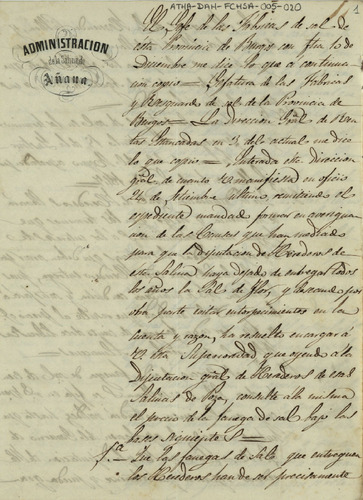 ATHA-DAH-FCHSA-005-010
1
ADMINISTRACION
de la Salina de
Añana
El Gefe de las Fabricas de sal de
esta Provincia de Burgos con fha 10 de
Diciembre me dice lo que a continua
cion copio = Gefatura de las Fabricas
y Resguardo de sal de la Provincia de
Burgos = La Direccion Gral de Ren
tas Estancadas en 3 del actual me dice
lo que copio = Enterada esta Direccion
gral de cuanto V. manifiesta en oficio
24 de Setiembre ultimo remitiendo el
expediente mandad formar en averigua
cion de las Causas que han mediado
para que la Diputacion de Herederos de
esta Salina haya dejado de entregar todos
los años la Sal de flor, y deseando por
otra parte evitar entorpecimientos en la
cuenta y razon, ha resuelto encargar a
V. esta Superioridad que oyendo a la
Diputacion gral de Herederos de esas
Salinas de Poza, consulte a la misma
el precio de la fanega de sal bajo las
bases siguientes =
1.a = Que las fanegas de Sal que entreguen
los Herederos han de ser precisamente